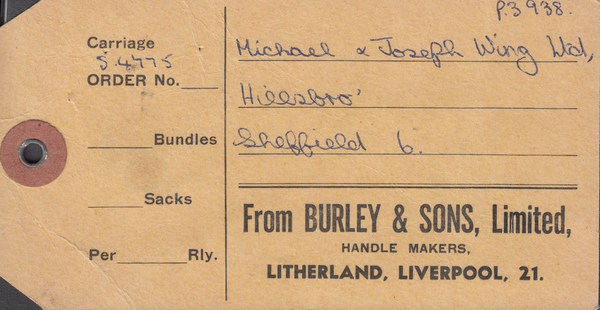 P.3938.
Carriage
S.4775
ORDER No.
Bundles
Sacks
Per Rly.
Michael & Joseph Wing Ltd,
Hillsbro'
Sheffield 6.
From BURLEY & SONS, Limited,
HANDLE MAKERS,
LITHERLAND, LIVERPOOL, 21.